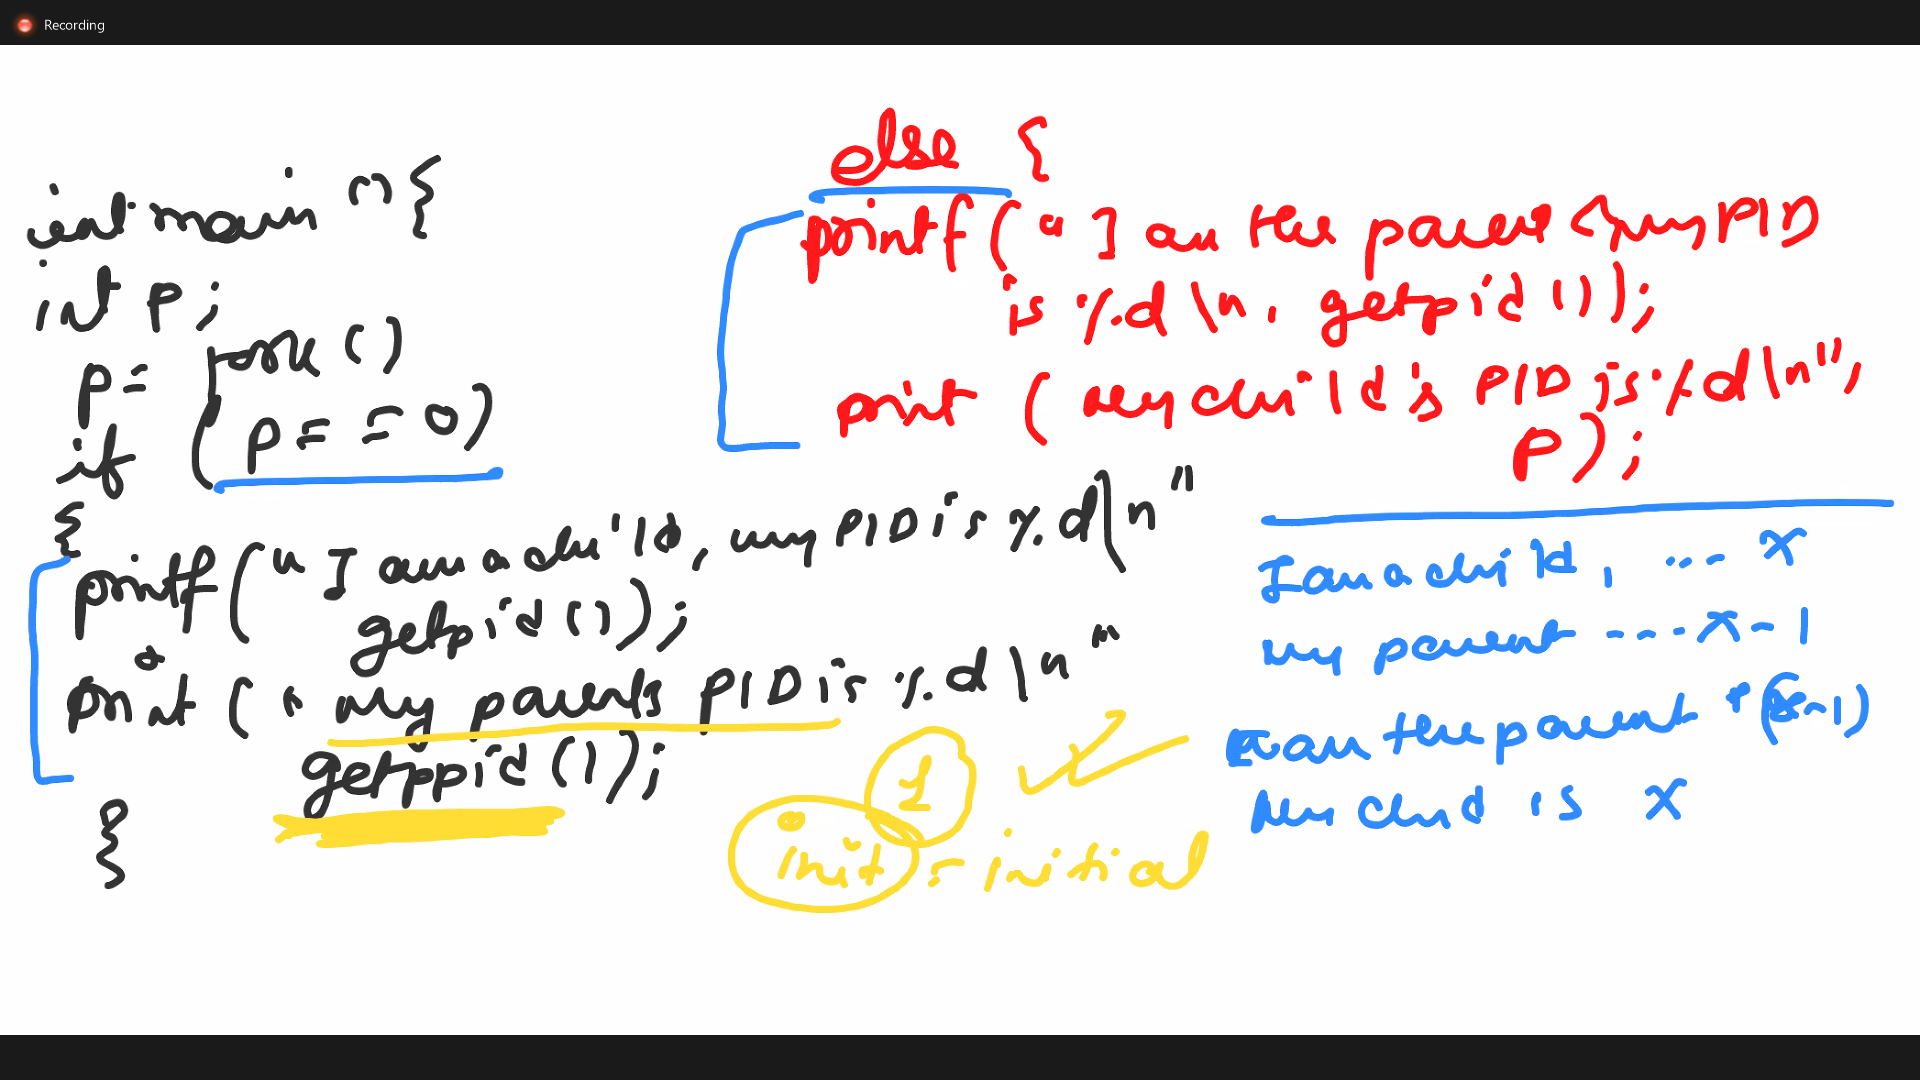 Recording
int main () {
int p;
p = fork ()
if (p = = 0)
{
printf ( " I am a child, my PID is %d \n "
getpid ());
print ( " my parents PID is %d \n "
getppid ());
}
else {
printf ( " I am the parent my PID
is %d \n , getpid ());
print ( my child's PID is %d \n ",
p );
I am a child, ... x
my parent --- x-1
I am the parent (x-1)
My child is x
1
init = initial